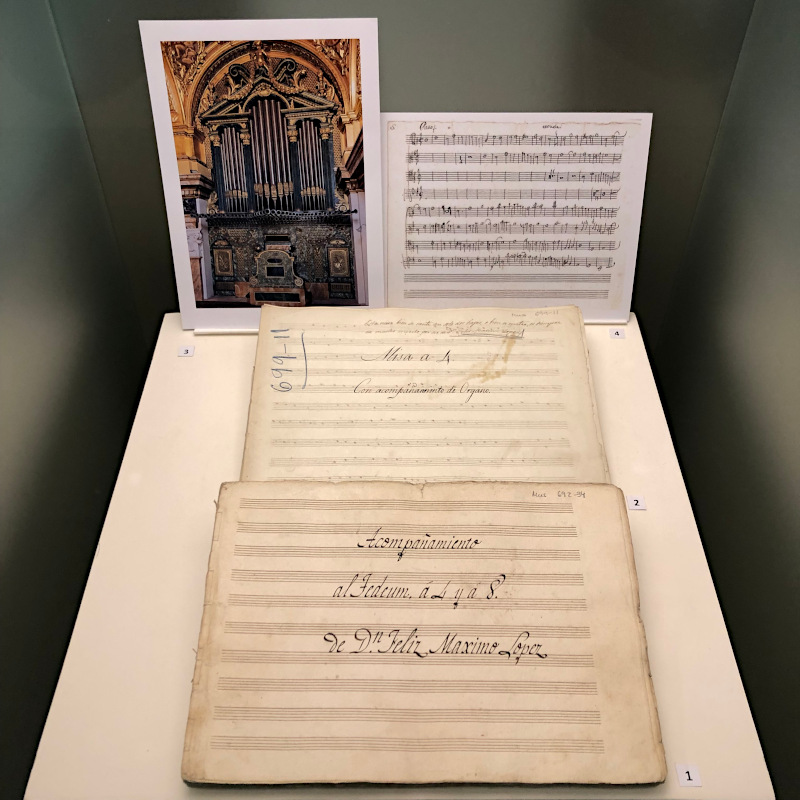 3
4
Mus 699-11
699-11
Misa a 4
Con acompañamiento de Organo.
2
Mus 692-34
Acompañamiento
al Tedeum, á 4 y á 8.
de Dⁿ Feliz Maximo Lopez
1